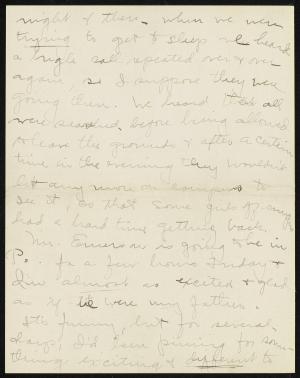 night & then when we were
trying to get to sleep we heard
a bugle call repeated over & over
again, so I suppose they were
going then. We heard that all
were searched before being allowed
to leave the grounds & after a certain
time in the evening they wouldn't
let any more on campus to
see it, so that some girls
had a hard time getting back.
Mr. Emerson is going to be in
P. for a few hours Friday &
I'm almost as excited & glad
as if he were my father.
It's funny, but for several
days I'd been pining for some-
thing exciting & different to